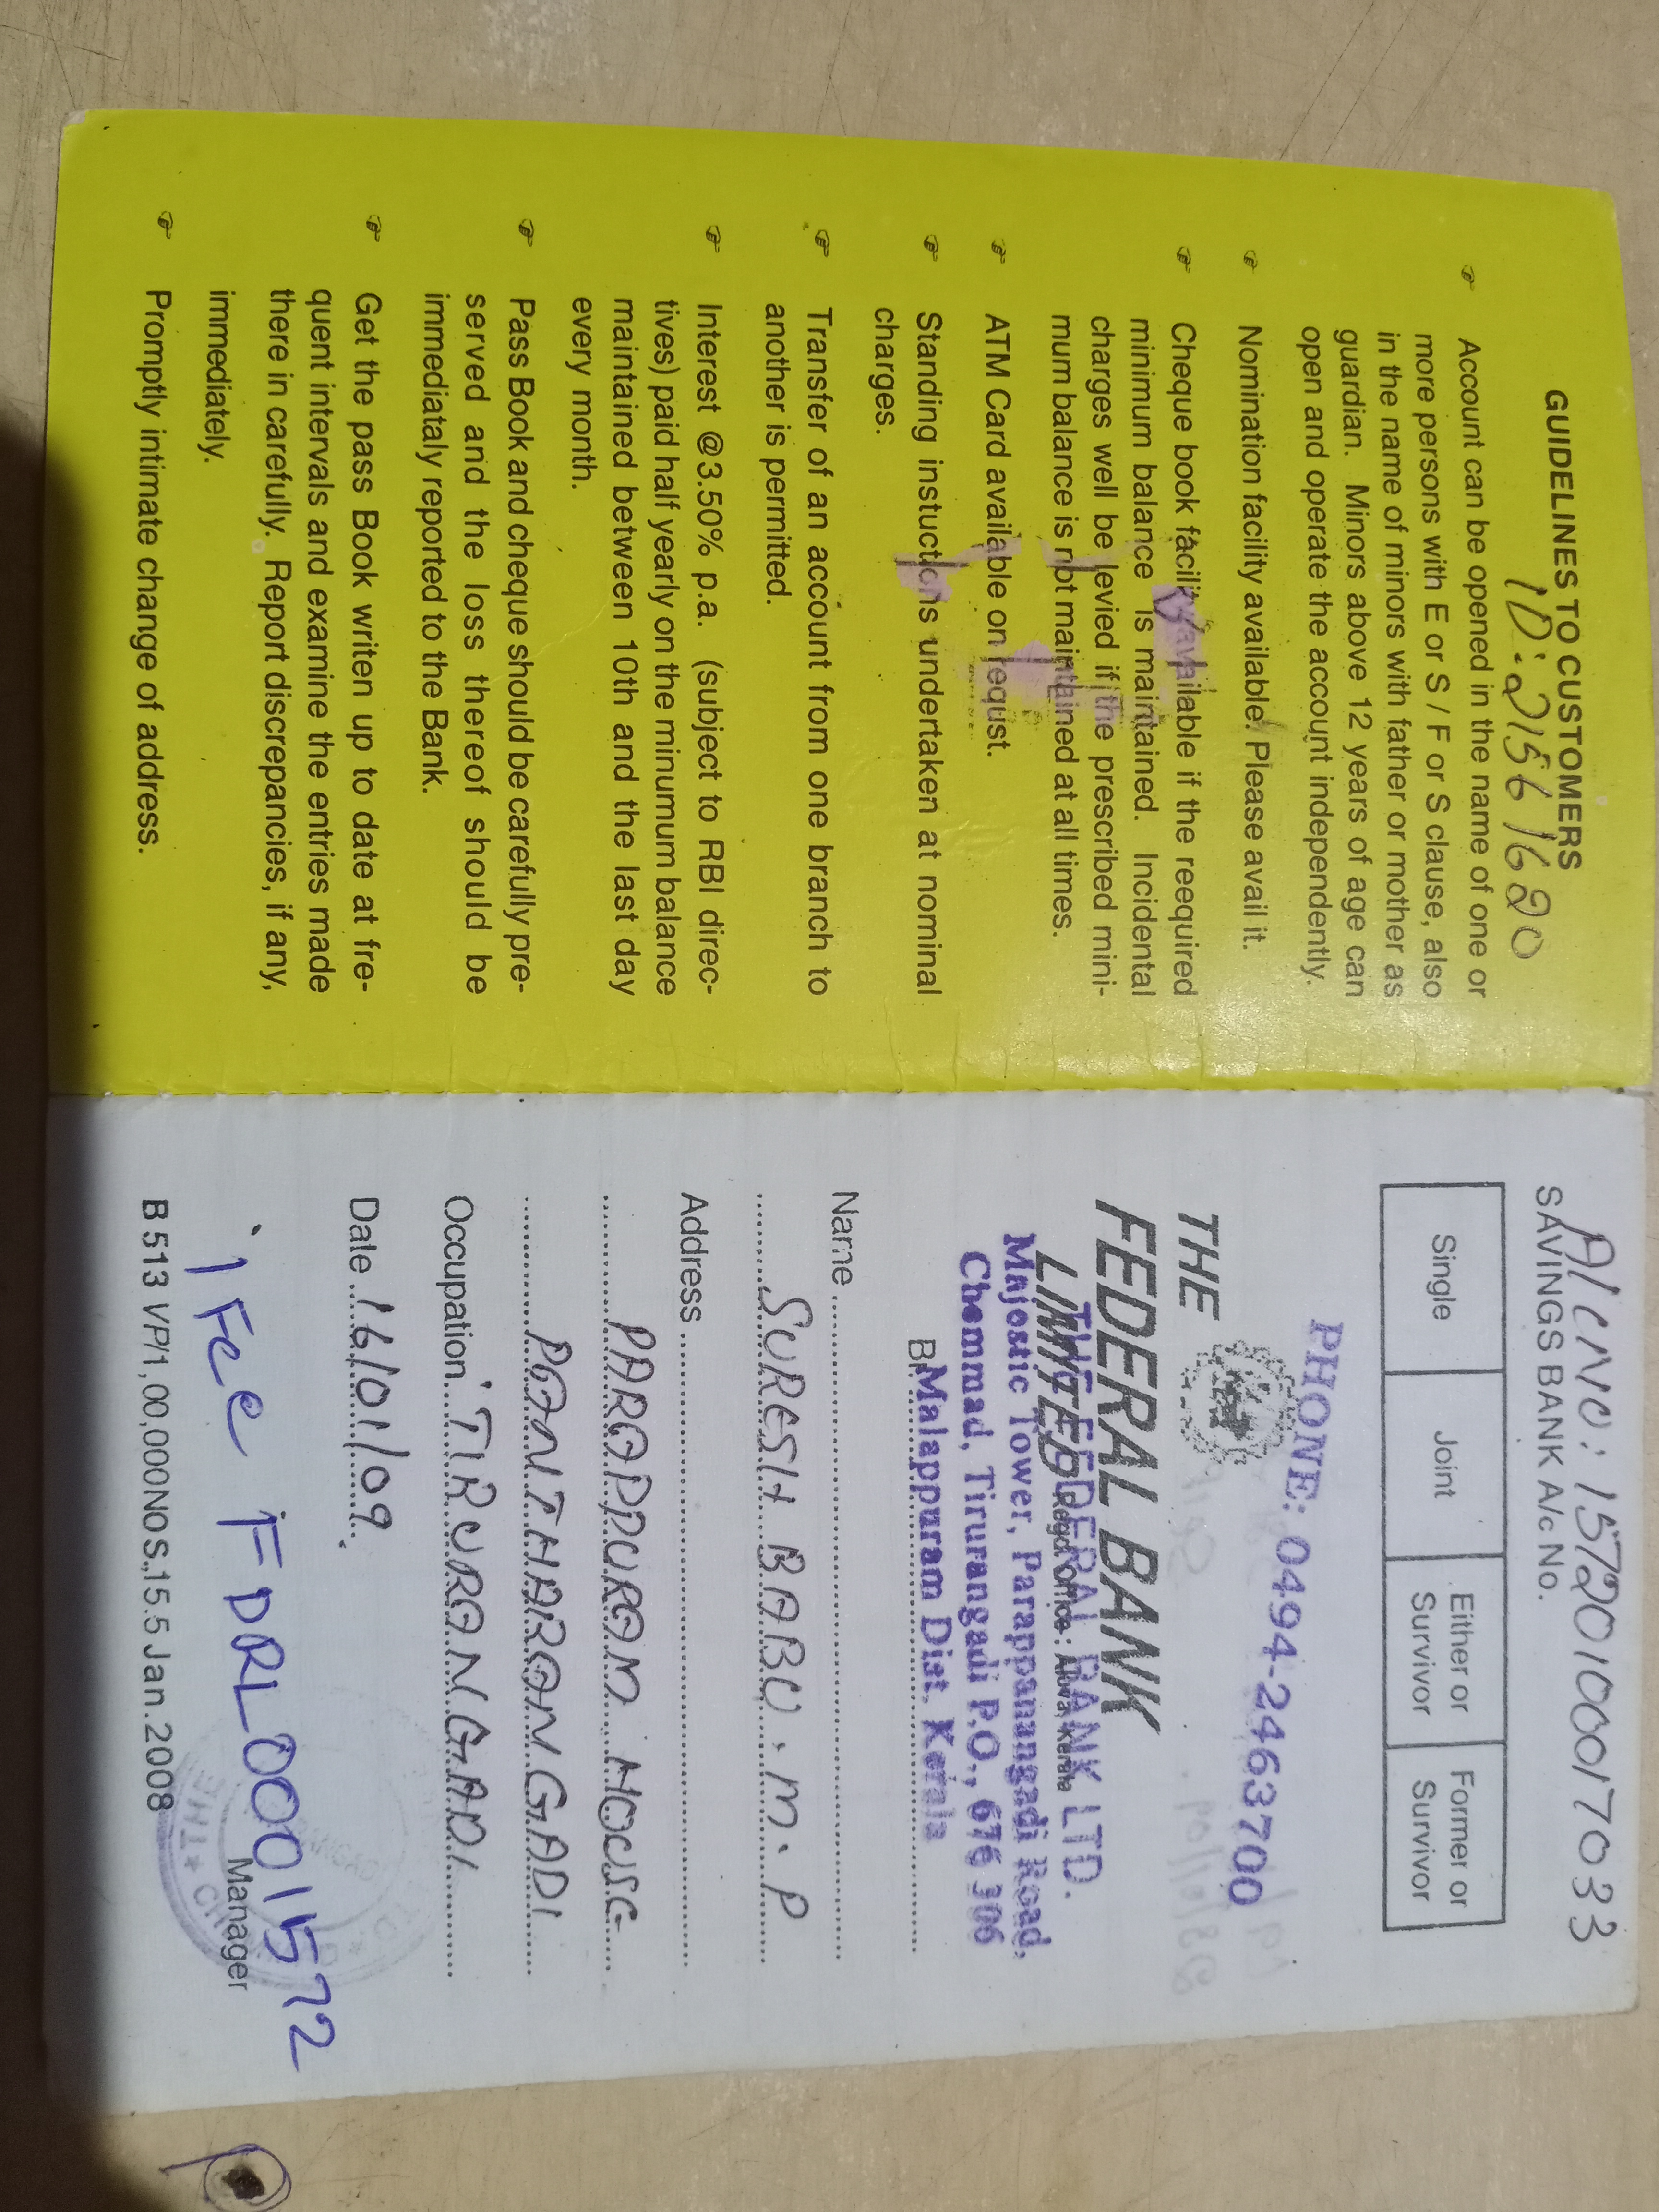 GUIDELINES TO CUSTOMERS
ID: 21561620
Account can be opened in the name of one or
more persons with E or S / F or S clause, also
in the name of minors with father or mother as
guardian. Minors above 12 years of age can
open and operate the account independently.
Nomination facility available. Please avail it.
Cheque book facility available if the reequired
minimum balance is maintained. Incidental
charges well be levied if the prescribed mini-
mum balance is not maintained at all times.
ATM Card available on request.
Standing instuctions undertaken at nominal
charges.
Transfer of an account from one branch to
another is permitted.
Interest @3.50% p.a. (subject to RBI direc-
tives) paid half yearly on the minumum balance
maintained between 10th and the last day
every month.
Pass Book and cheque should be carefully pre-
served and the loss thereof should be
immediataly reported to the Bank.
Get the pass Book writen up to date at fre-
quent intervals and examine the entries made
there in carefully. Report discrepancies, if any,
immediately.
Promptly intimate change of address.
A/C NO: 15720100017033
SAVINGS BANK A/c No.
Single Joint Either or Survivor Former or Survivor
PHONE: 0494-2463700
THE
FEDERAL BANK
LIMITED Regd. Office: Aluva Kerala
THE FEDERAL BANK LTD.
Majestic Tower, Parappanangadi Road,
Chemmad, Tirurangadi P.O., 676 306
Br. Malappuram Dist. Kerala
Name
SURESH BABU. M. P
Address
PARAPPURAM HOUSE
PANTHARANGADI
Occupation TIRURANGADI
Date 16/01/09
iFce FDRL0001572
Manager
B 513 VP/1,00,000NOS.,15.5 Jan.2008